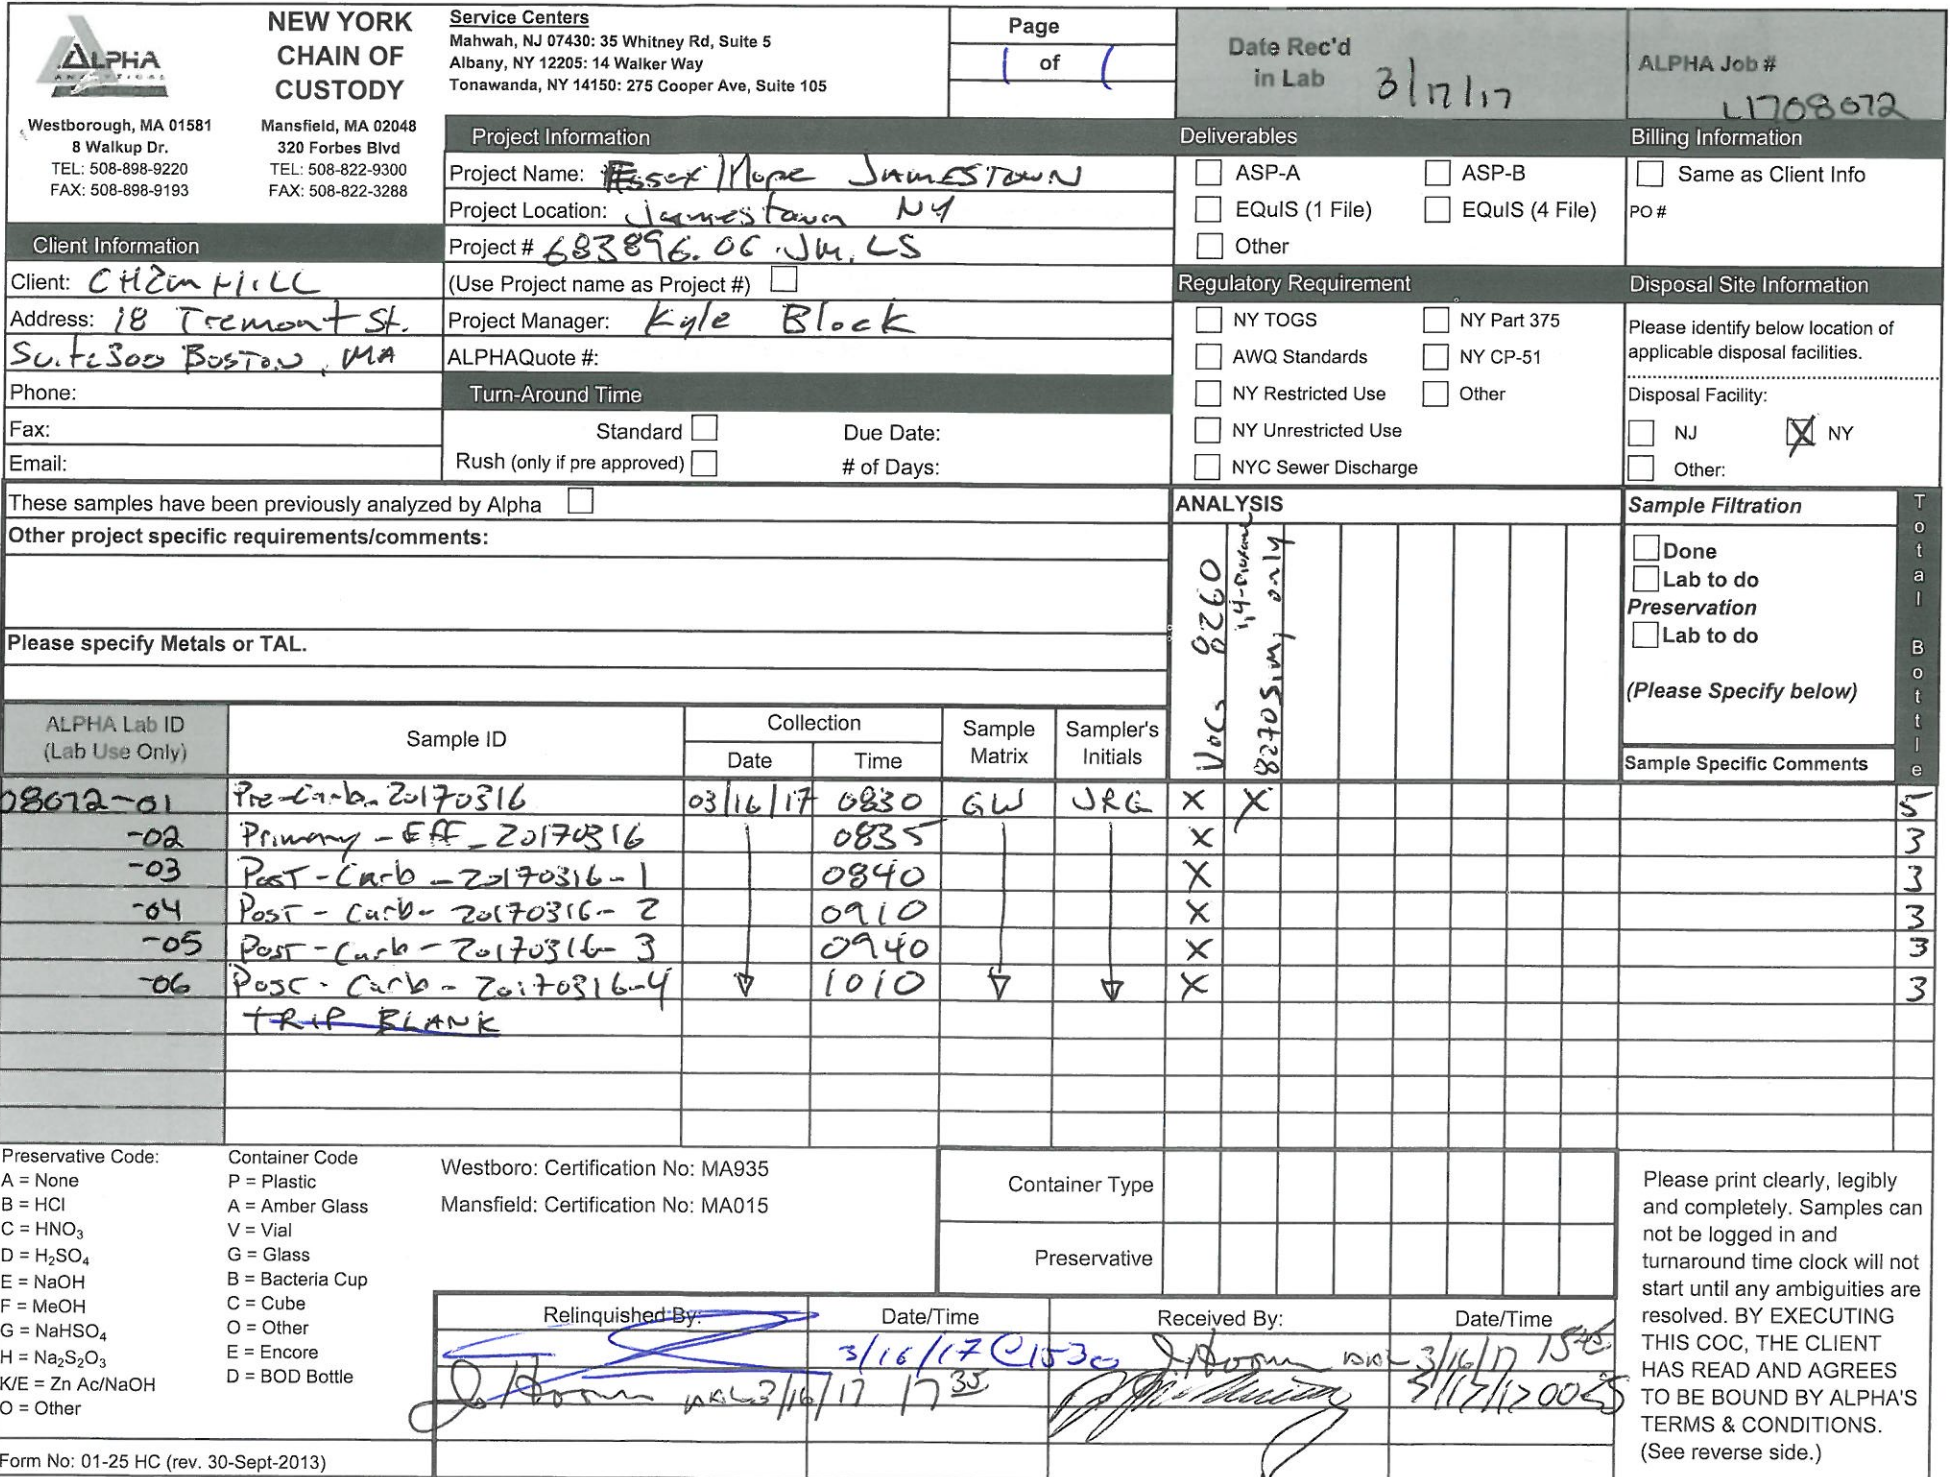 ALPHA
ANALYTICAL
NEW YORK
CHAIN OF
CUSTODY
Westborough, MA 01581
8 Walkup Dr.
TEL: 508-898-9220
FAX: 508-898-9193
Mansfield, MA 02048
320 Forbes Blvd
TEL: 508-822-9300
FAX: 508-822-3288
Service Centers
Mahwah, NJ 07430: 35 Whitney Rd, Suite 5
Albany, NY 12205: 14 Walker Way
Tonawanda, NY 14150: 275 Cooper Ave, Suite 105
Page
1 of 1
Date Rec'd
in Lab 3/17/17
ALPHA Job #
L1708072
Client Information
Client: CH2M HILL
Address: 18 Tremont St.
Suite 300 Boston, MA
Phone:
Fax:
Email:
Project Information
Project Name: Essex/Hope JAMESTOWN
Project Location: Jamestown NY
Project # 683896.06.JM.LS
(Use Project name as Project #)
Project Manager: Kyle Block
ALPHAQuote #:
Turn-Around Time
Standard Due Date:
Rush (only if pre approved) # of Days:
Deliverables
ASP-A ASP-B
EQuIS (1 File) EQuIS (4 File)
Other
Regulatory Requirement
NY TOGS NY Part 375
AWQ Standards NY CP-51
NY Restricted Use Other
NY Unrestricted Use
NYC Sewer Discharge
Billing Information
Same as Client Info
PO #
Disposal Site Information
Please identify below location of
applicable disposal facilities.
Disposal Facility:
NJ X NY
Other:
These samples have been previously analyzed by Alpha
Other project specific requirements/comments:
Please specify Metals or TAL.
ANALYSIS
VOCs 8260
1,4-Dioxane
8270 Sim, only
Sample Filtration
Done
Lab to do
Preservation
Lab to do
(Please Specify below)
Total Bottle
ALPHA Lab ID
(Lab Use Only)
Sample ID
Collection
Date Time
Sample
Matrix
Sampler's
Initials
Sample Specific Comments
08072-01 Pre-Carb-20170316 03/16/17 0830 GW JRG X X 5
-02 Primary-Eff-20170316 0835 X 3
-03 Post-Carb-20170316-1 0840 X 3
-04 Post-Carb-20170316-2 0910 X 3
-05 Post-Carb-20170316-3 0940 X 3
-06 Post-Carb-20170316-4 1010 X 3
TRIP BLANK
Preservative Code:
A = None
B = HCl
C = HNO₃
D = H₂SO₄
E = NaOH
F = MeOH
G = NaHSO₄
H = Na₂S₂O₃
K/E = Zn Ac/NaOH
O = Other
Container Code
P = Plastic
A = Amber Glass
V = Vial
G = Glass
B = Bacteria Cup
C = Cube
O = Other
E = Encore
D = BOD Bottle
Westboro: Certification No: MA935
Mansfield: Certification No: MA015
Container Type
Preservative
Relinquished By: Date/Time Received By: Date/Time
3/16/17 @ 1530 3/16/17 1545
3/16/17 1735 3/17/17 0055
Please print clearly, legibly
and completely. Samples can
not be logged in and
turnaround time clock will not
start until any ambiguities are
resolved. BY EXECUTING
THIS COC, THE CLIENT
HAS READ AND AGREES
TO BE BOUND BY ALPHA'S
TERMS & CONDITIONS.
(See reverse side.)
Form No: 01-25 HC (rev. 30-Sept-2013)